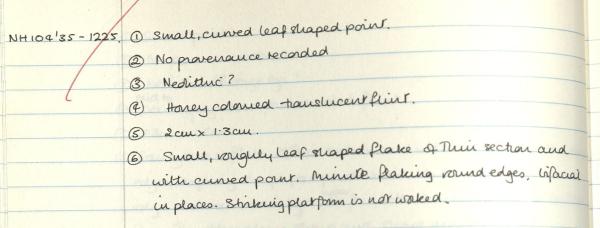 NH104'35-1225. ① Small, curved leaf shaped point.
② No provenance recorded
③ Neolithic?
④ Honey coloured translucent flint.
⑤ 2cm x 1.3cm.
⑥ Small, roughly leaf shaped flake of thin section and
with curved point. Minute flaking round edges, bifacial
in places. Striking platform is not worked.